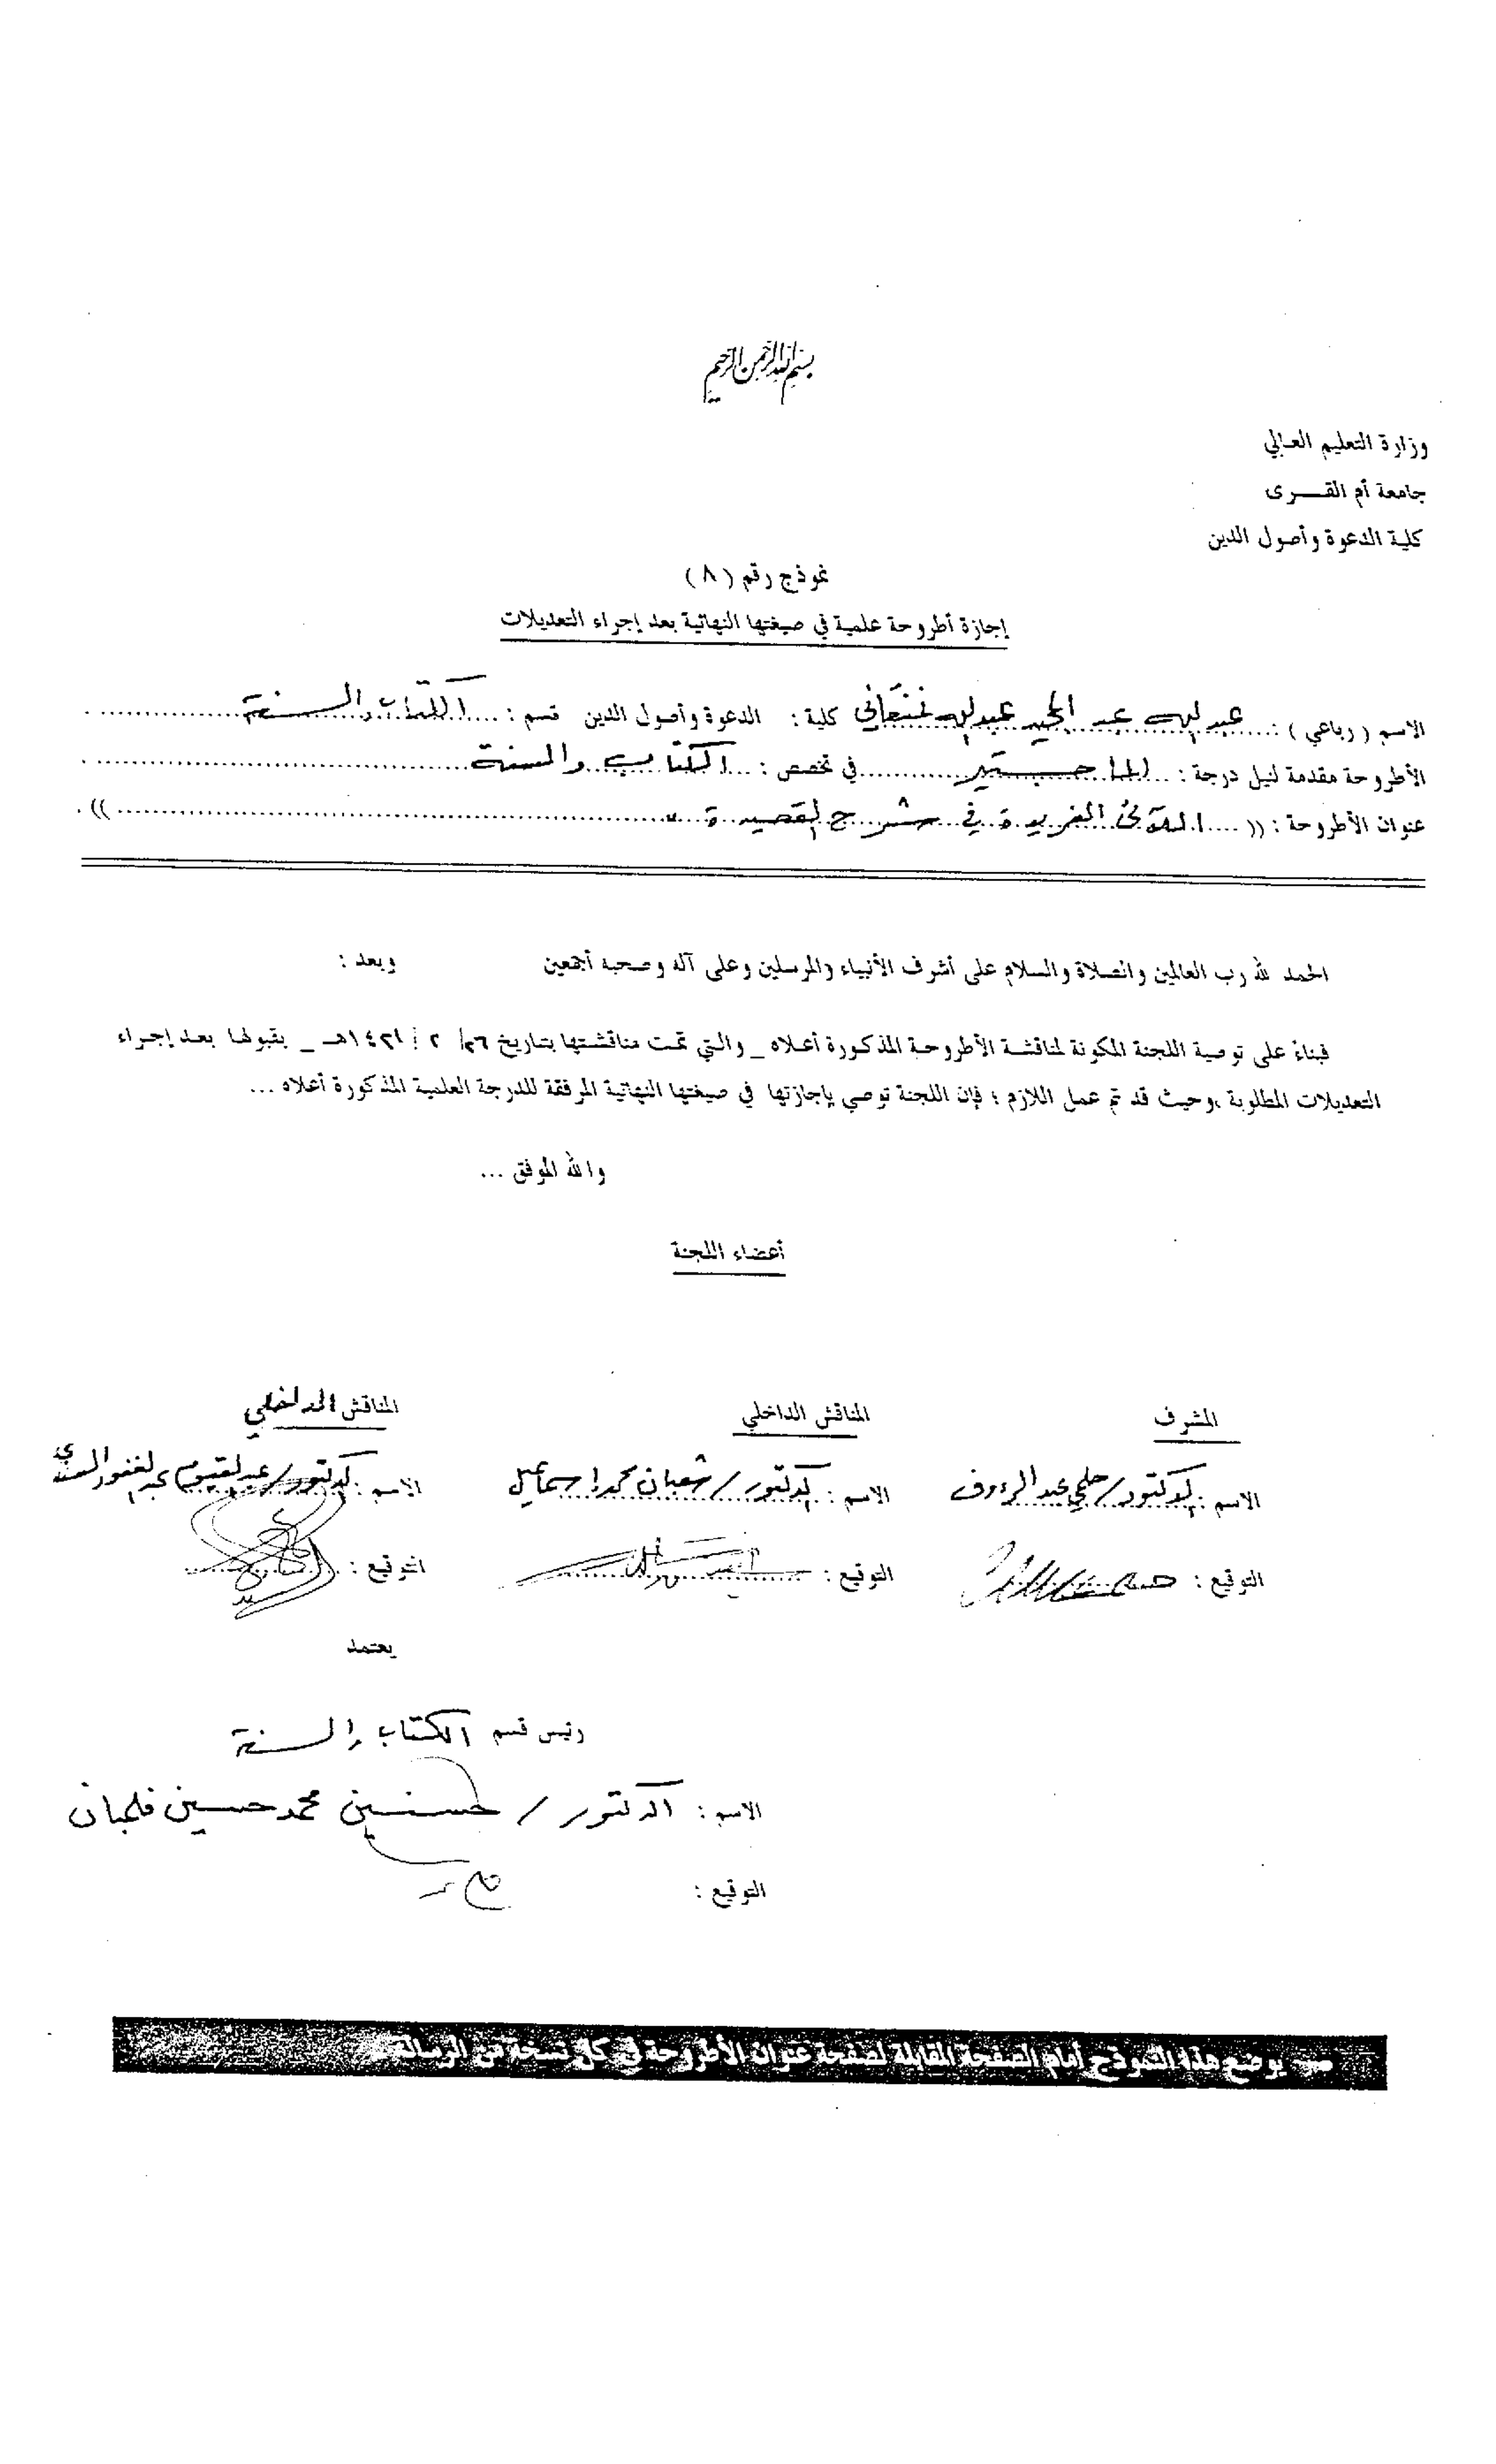 بسم الله الرحمن الرحيم
وزارة التعليم العالي
جامعة أم القــــرى
كلية الدعوة وأصول الدين
نموذج رقم ( ٨ )
إجازة أطروحة علمية في صيغتها النهائية بعد إجراء التعديلات
الاسم ( رباعي ) : عبد الله عبد المجيد عبد الله نمنكاني كلية : الدعوة وأصول الدين قسم : الكتاب والسنة
الأطروحة مقدمة لنيل درجة : الماجستير في تخصص : الكتاب والسنة
عنوان الأطروحة : (( اللآلئ الفريدة في شرح القصيدة )) .
الحمد لله رب العالمين والصلاة والسلام على أشرف الأنبياء والمرسلين وعلى آله وصحبه أجمعين وبعد :
فبناءً على توصية اللجنة المكونة لمناقشة الأطروحة المذكورة أعلاه _ والتي تمت مناقشتها بتاريخ ٢٦/ ٢ / ١٤٢١هـ _ بقبولها بعد إجراء
التعديلات المطلوبة ،وحيث قد تم عمل اللازم ؛ فإن اللجنة توصي بإجازتها في صيغتها النهائية المرفقة للدرجة العلمية المذكورة أعلاه ...
والله الموفق ...
أعضاء اللجنة
المشرف المناقش الداخلي المناقش الداخلي
الاسم : الدكتور / حلمي عبد الرءوف الاسم : الدكتور / شعبان محمد إسماعيل الاسم : الدكتور / عبد القيوم عبد الغفور السندي
التوقيع : التوقيع : التوقيع :
يعتمد
رئيس قسم الكتاب والسنة
الاسم : الدكتور / حسنين محمد حسين فلمبان
التوقيع :
يوضع هذا النموذج أمام الصفحة المقابلة لصفحة عنوان الأطروحة في كل نسخة من الرسالة